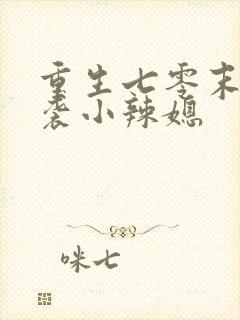 重生七零末
袭小辣媳
咪七